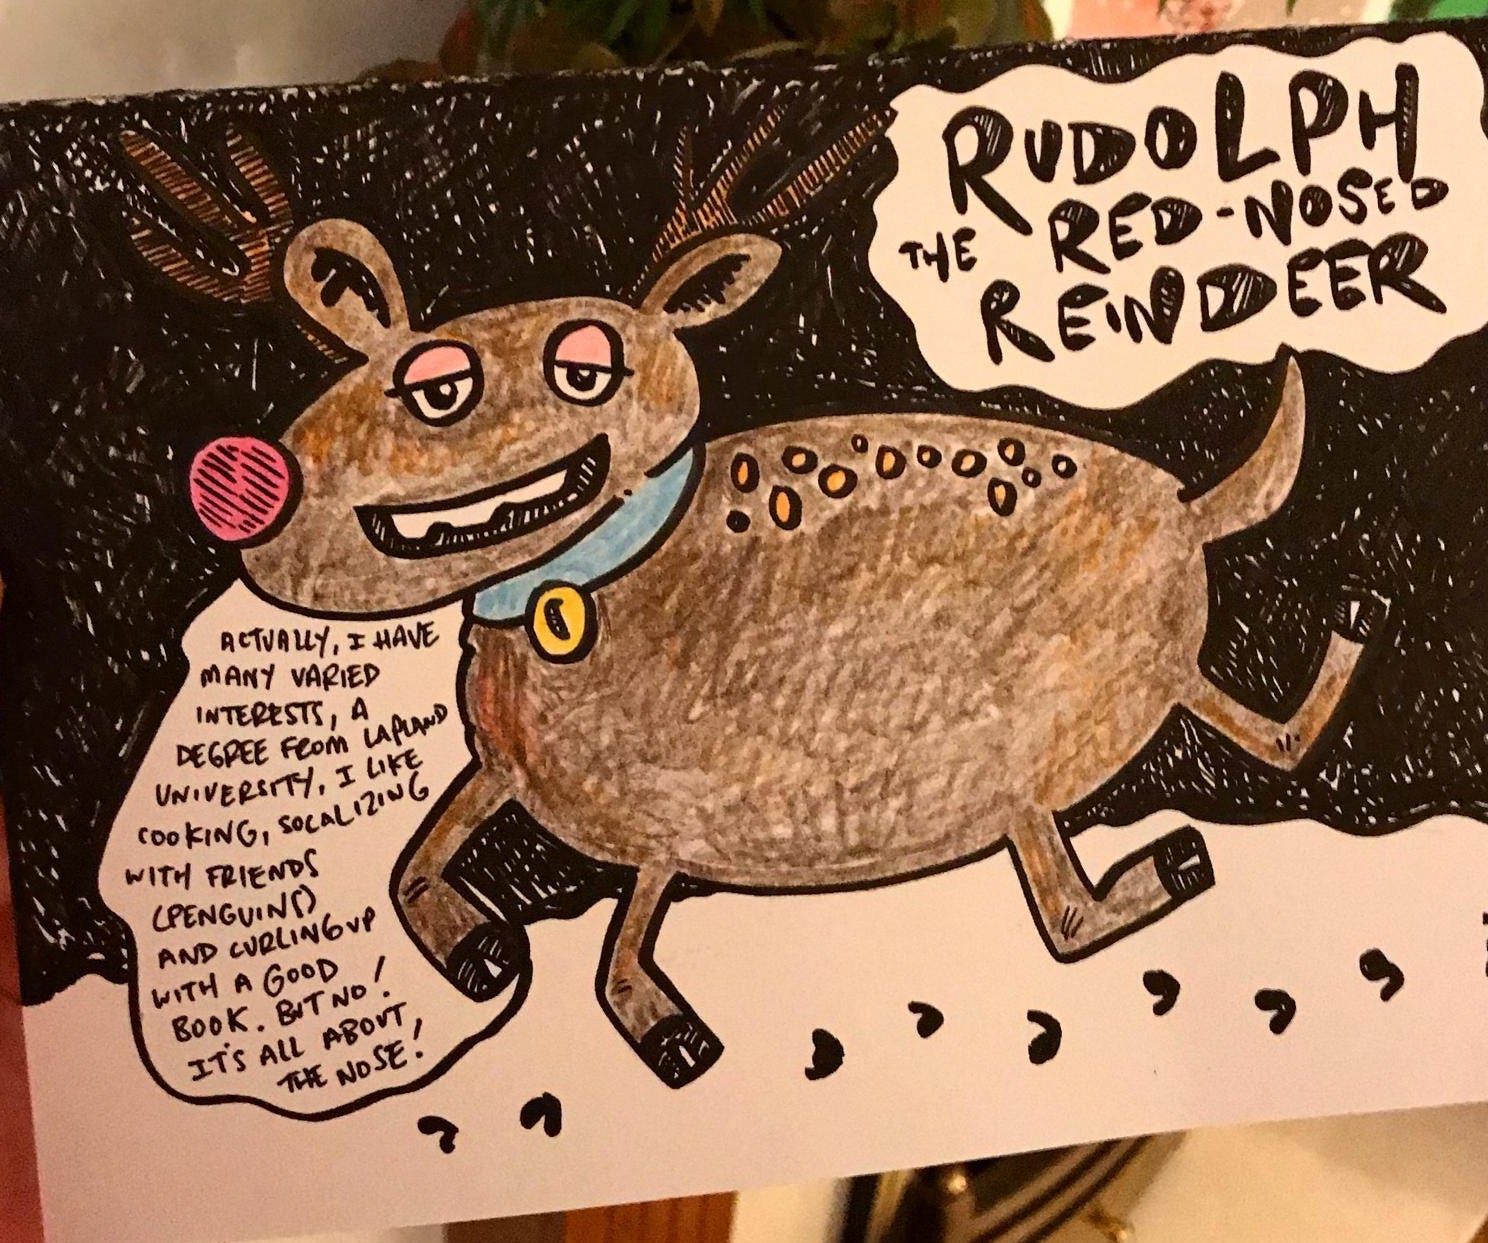 RUDOLPH
THE RED-NOSED
REINDEER
ACTUALLY, I HAVE
MANY VARIED
INTERESTS, A
DEGREE FROM LAPLAND
UNIVERSITY, I LIKE
COOKING, SOCALIZING
WITH FRIENDS
(PENGUINS)
AND CURLING UP
WITH A GOOD
BOOK. BUT NO!
IT'S ALL ABOUT
THE NOSE!